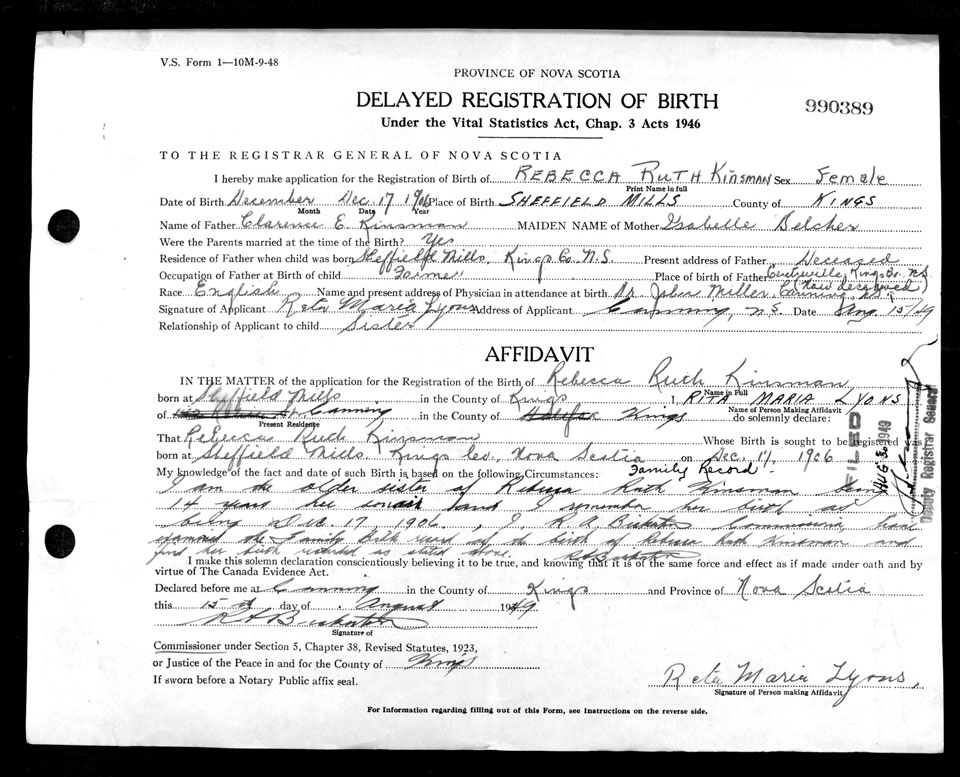 V.S. Form 1—10M-9-48
PROVINCE OF NOVA SCOTIA
DELAYED REGISTRATION OF BIRTH
990389
Under the Vital Statistics Act, Chap. 3 Acts 1946
TO THE REGISTRAR GENERAL OF NOVA SCOTIA
I hereby make application for the Registration of Birth of REBECCA RUTH KINSMAN Sex Female
Print Name in full
Date of Birth December Dec 17 1906 Place of Birth SHEFFIELD MILLS County of KINGS
Month Date Year
Name of Father Clarence E. Kinsman MAIDEN NAME of Mother Isabelle Belcher
Were the Parents married at the time of the Birth? Yes
Residence of Father when child was born Sheffield Mills, Kings Co. N.S. Present address of Father Deceased
Occupation of Father at Birth of child Place of birth of Father Kings Co. N.S.
Race English Name and present address of Physician in attendance at birth Dr. John Miller Canning (Now deceased)
Signature of Applicant Reta Maria Lyons Address of Applicant Canning, N.S. Date Aug 15/49
Relationship of Applicant to child Sister
AFFIDAVIT
IN THE MATTER of the application for the Registration of the Birth of Rebecca Ruth Kinsman
Name in Full
born at Sheffield Mills in the County of Kings I, RITA MARIA LYONS
Name of Person Making Affidavit
of Canning in the County of Halifax Kings do solemnly declare:
Present Residence
That Rebecca Ruth Kinsman Whose Birth is sought to be registered was
born at Sheffield Mills, Kings Co., Nova Scotia on Dec. 17, 1906
My knowledge of the fact and date of such Birth is based on the following Circumstances: Family Record.
I am the older sister of Rebecca Ruth Kinsman being
14 years her senior and I remember her birth as
being Dec. 17, 1906. I, R A Commissioner have
examined the Family Birth record of the birth of Rebecca Ruth Kinsman and
find her birth recorded as stated above.
I make this solemn declaration conscientiously believing it to be true, and knowing that it is of the same force and effect as if made under oath and by
virtue of The Canada Evidence Act.
Declared before me at Canning in the County of Kings and Province of Nova Scotia
this 15th day of August 1949
Signature of
Commissioner under Section 5, Chapter 38, Revised Statutes, 1923,
or Justice of the Peace in and for the County of Kings
If sworn before a Notary Public affix seal.
Reta Maria Lyons
Signature of Person making Affidavit
For Information regarding filling out of this Form, see Instructions on the reverse side.
FILED
AUG 30 1949
Deputy Registrar General